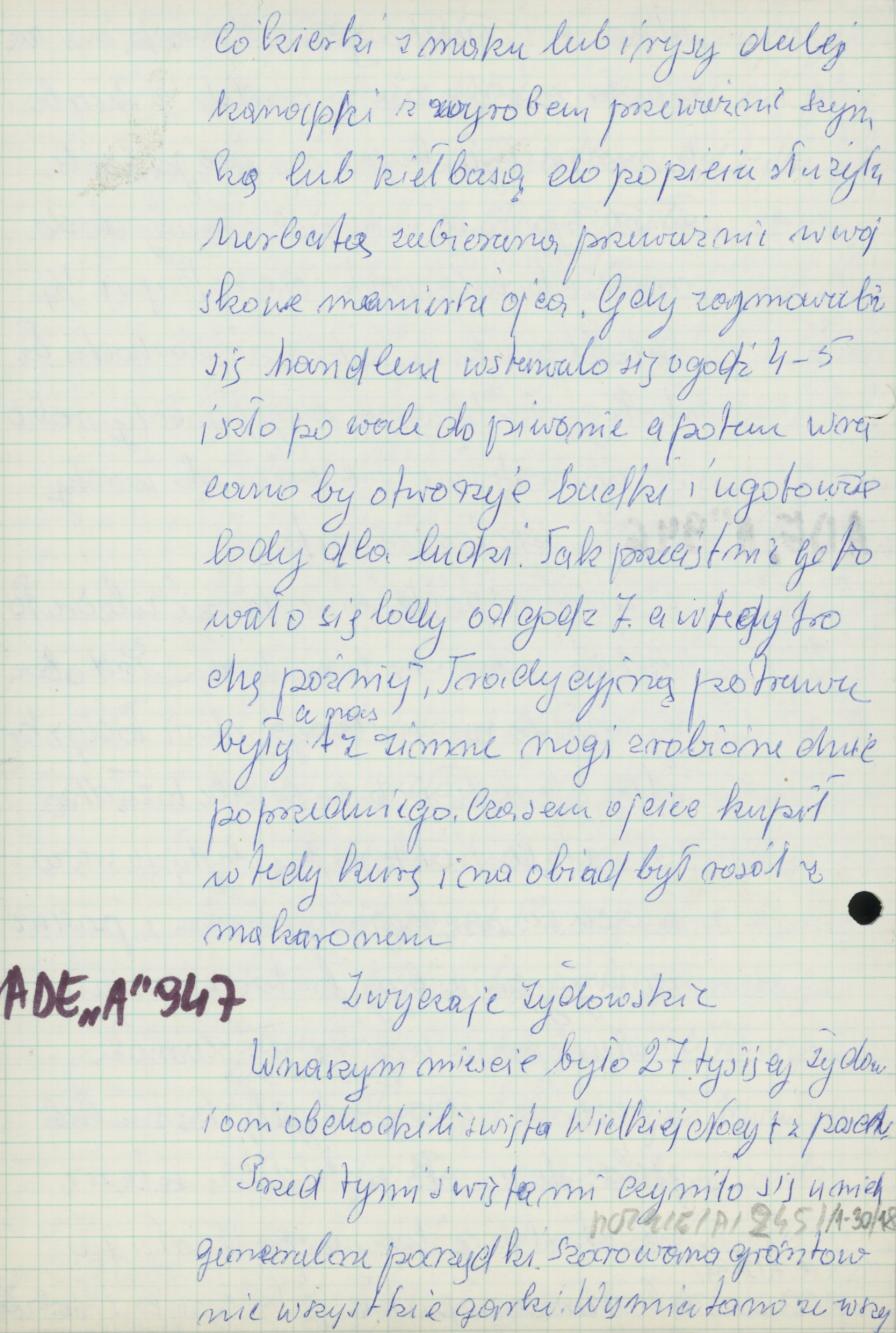 Cókierki z maku lub irysy dalej
kanapki z wyrobem przeważnie szyn
ką lub kiełbasą do popicia służyła
herbatą zabierana przeważnie w woj
skowe manierki ojca. Gdy zajmowali
się handlem wstawało się o godz 4-5
i szło po wode do piwonie a potem wra
cano by otworzyć budki i ugotować
lody dla ludzi. Tak przeciętnie goto
wało się lody od godz 7. a wtedy tro
chę poźniej, Tradycyjną potrawu
u nas
były tz zimne nogi zrobione dnie
poprzedniego. Czasem ojciec kupił
wtedy kurę i na obiad był rosół z
makaronem
ADE„A"947
Zwyczaje Żydowskie
Wnaszym miescie było 27 tysięcy żydow
i oni obchodzili swięta Wielkiej Nocy tz
Przed tymi świętami czyniło się u nich
245 /1-30/48
generalne porzydki. Szorowana gróntow
nie wszystkie garki. Wymiatano ze wszy